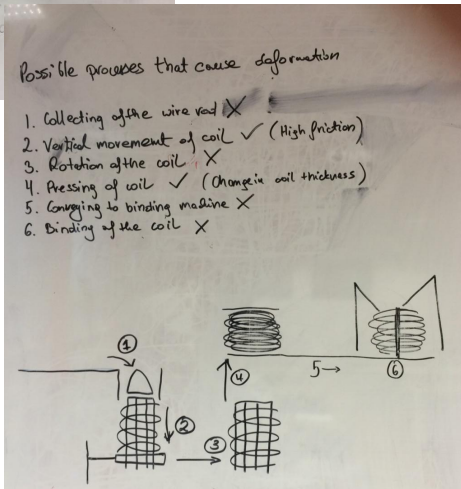 Possible processes that cause deformation
1. Collecting of the wire rod X
2. Vertical movement of coil ✓ (High friction)
3. Rotation of the coil X
4. Pressing of coil ✓ (Change in coil thickness)
5. Conveying to binding machine X
6. Binding of the coil X
1
2
3
4
5→
6